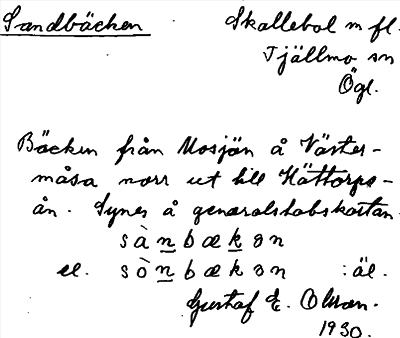 Sandbäcken Skallebol m fl.
Tjällmo sn
Ögl.
Bäcken från Mosjön å Väster-
måsa norr ut till Hättorps-
ån. Synes å generalstabskartan.
sànbækən
el. sònbækən :äl.
Gustaf E. Olsson.
1930.